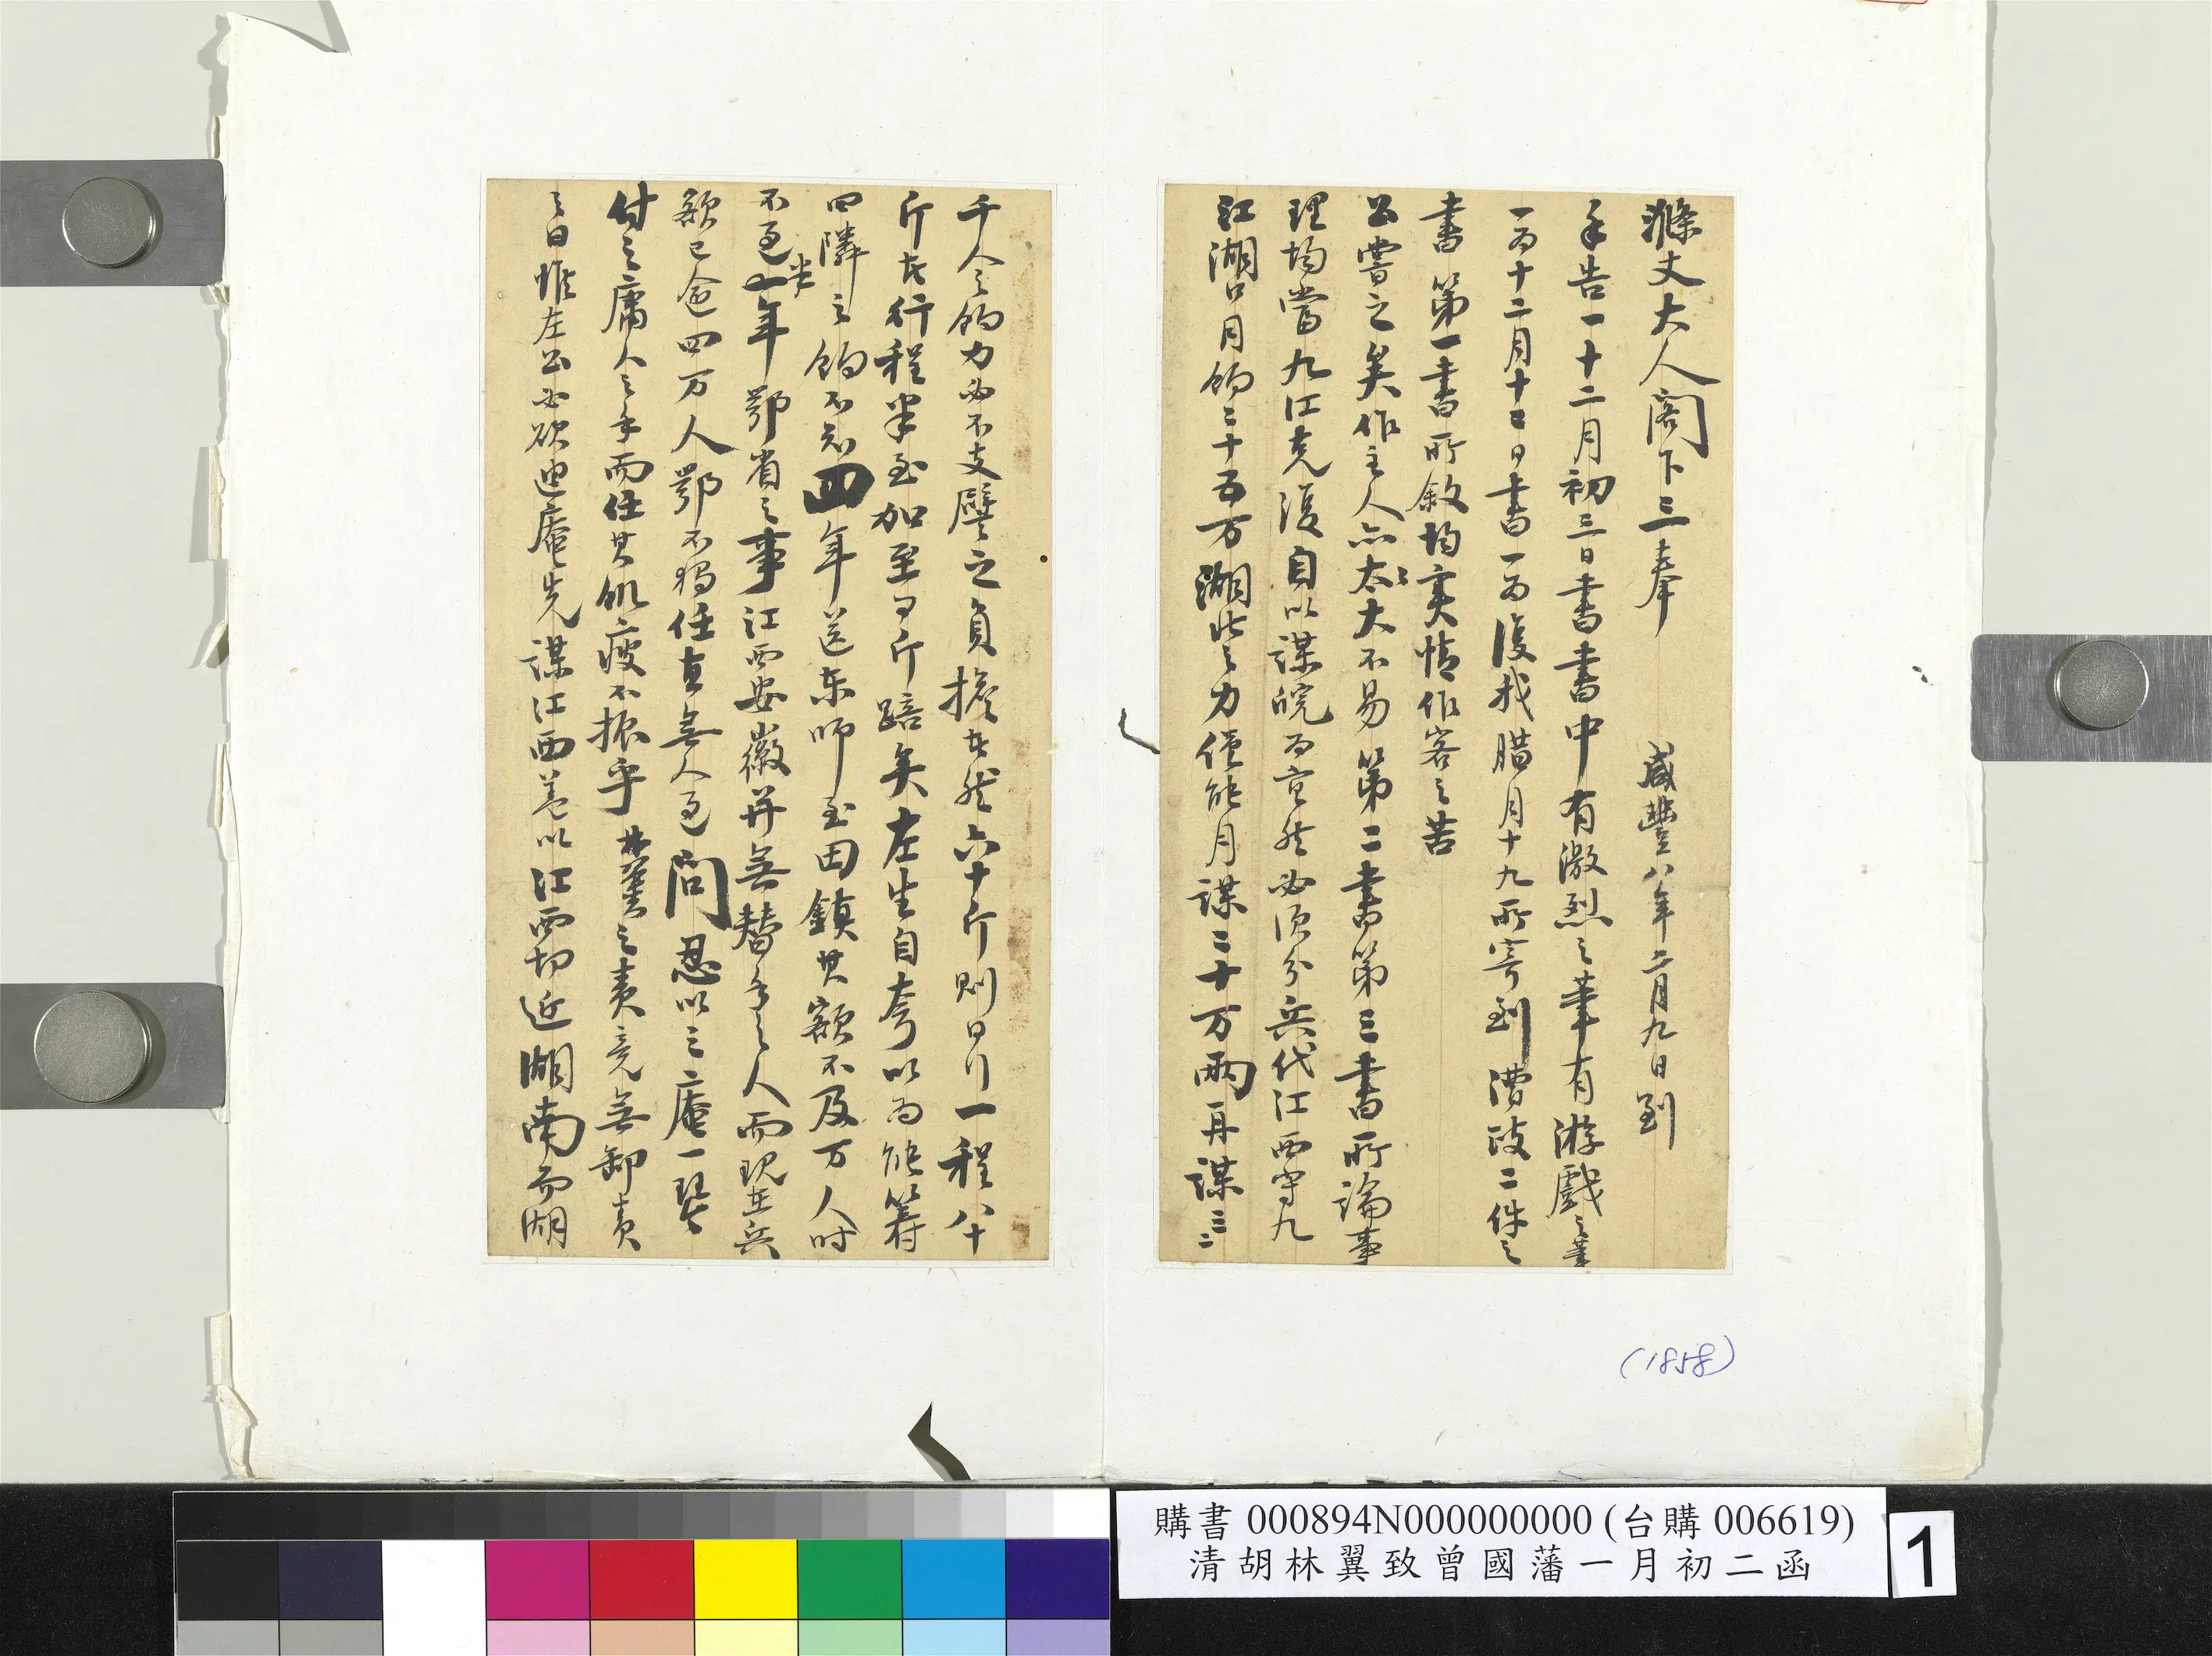 滌丈大人閣下三奉
咸豐八年二月九日到
手告一十二月初三日書書中有激烈之筆有游戲之筆
一為十二月十三日書一為復我腊月十九所寄到漕政二件之
書第一書所敘均實情作客之苦
公嘗之矣作主人亦太大不易第二書第三書所論事
理均當九江克復自以謀皖為定然必須分兵代江西守九
江湖口月餉三十五万湖北之力僅能月謀三十万兩再謀三二
千人之餉力必不支譬之負擔者然六十斤則日行一程八十
斤者行程半至加至百斤踣矣左生自夸以為能籌
四隣之餉不知四年送東師至田鎮其額不及万人時
不過半年鄂省之事江西安徽并無替手之人而現在兵
額已逾四万人鄂不獨任直無人過問忍以三庵一琴
付之庸人之手而任其飢疲不振乎林翼之責竟無卸責
之日惟左公必欲迪庵先謀江西蓋以江西切近湖南而湖
(1858)
購書 000894N000000000 (台購 006619)
清胡林翼致曾國藩一月初二函
1